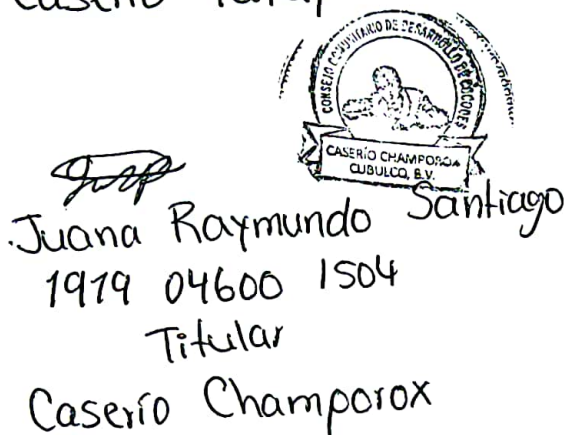 Caserío
CONSEJO COMUNITARIO DE DESARROLLO DE COCODES
CASERÍO CHAMPOROX
CUBULCO, B.V.
Juana Raymundo Santiago
1919 04600 1504
Titular
Caserío Champorox